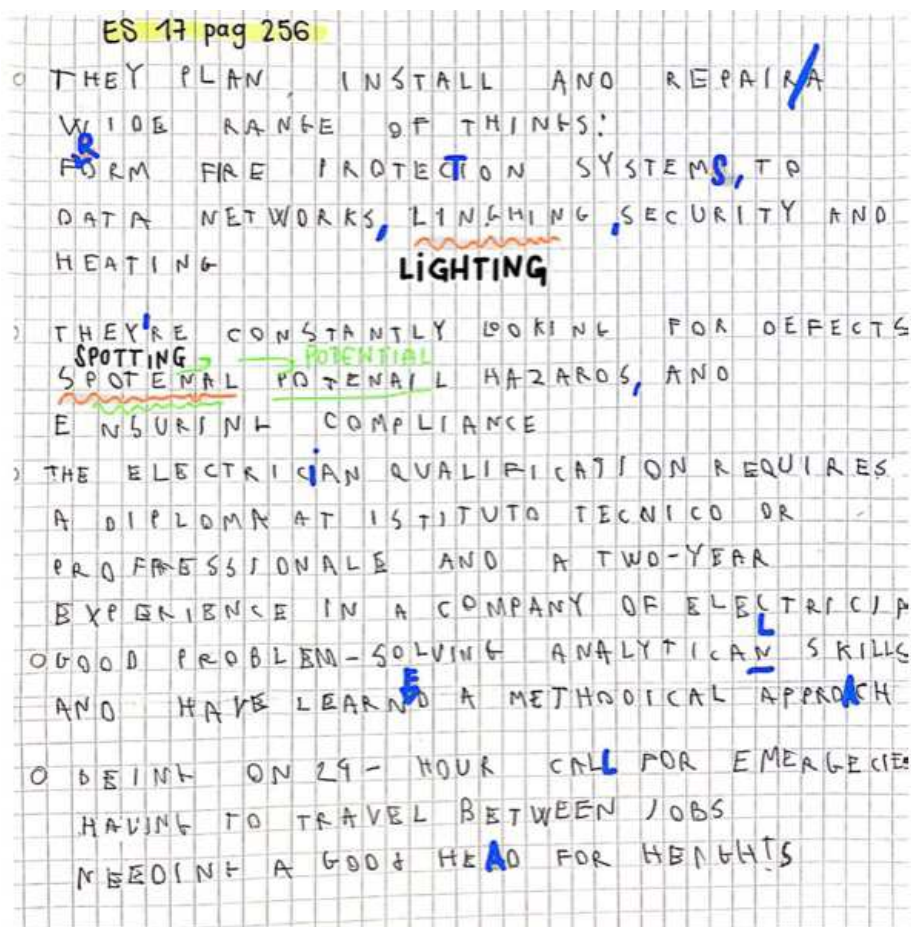 ES 17 pag 256
THEY PLAN, INSTALL AND REPAIR/A
WIDE RANGE OF THINGS:
R
FORM FIRE PROTECTION SYSTEMS, TO
DATA NETWORKS, LINGHING, SECURITY AND
HEATING LiGHTING
THEY'RE CONSTANTLY LOOKING FOR DEFECTS
SPOTTING POTENTIAL
SPOTENAL POTENAIL HAZARDS, AND
ENSURING COMPLIANCE
THE ELECTRICiAN QUALIFICATION REQUIRES
A DIPLOMA AT ISTITUTO TECNICO OR
PROFFESSIONALE AND A TWO-YEAR
EXPERIENCE IN A COMPANY OF ELECTRICIA
L
GOOD PROBLEM-SOLVING ANALYTICAN SKILLS
E
AND HAVE LEARND A METHODICAL APPROACH
BEING ON 24-HOUR CALL FOR EMERGECIES
HAVING TO TRAVEL BETWEEN JOBS
NEEDING A GOOd HEAD FOR HENGHTS